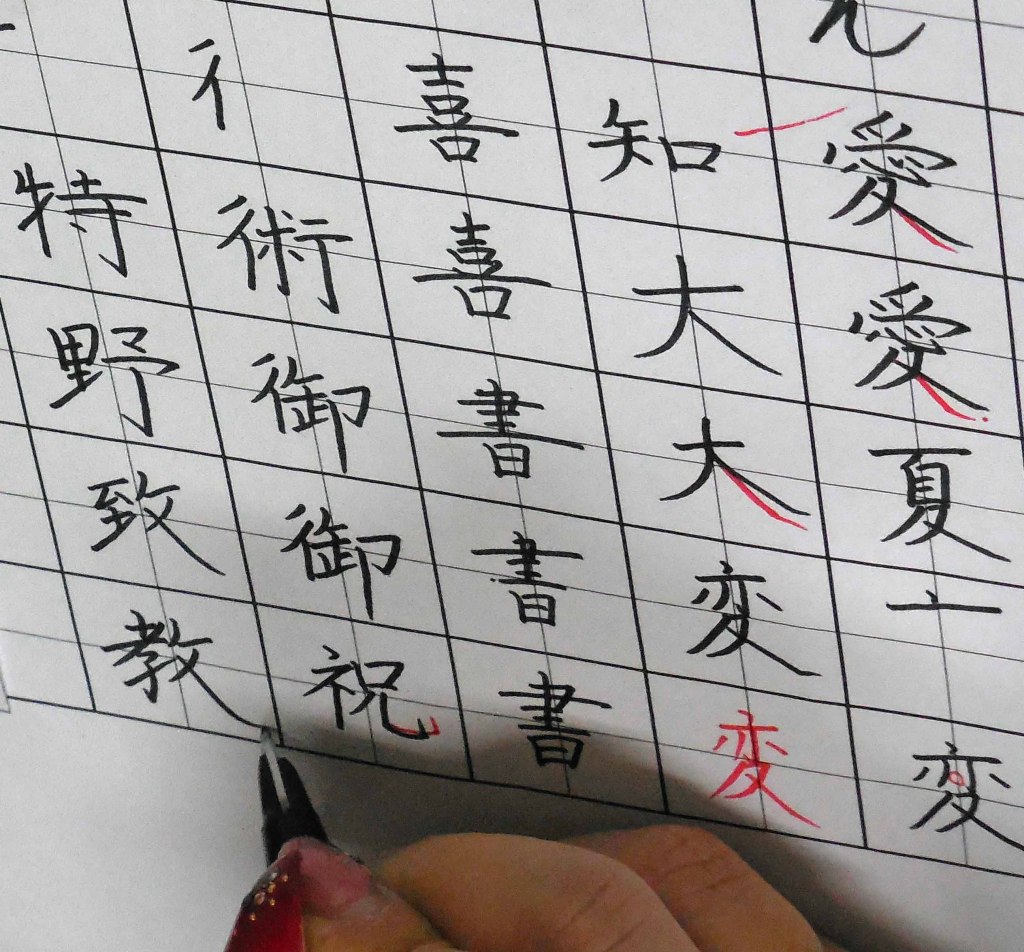 愛愛夏亠変
知大大変変
喜喜書書書
彳術御御祝
特野致教